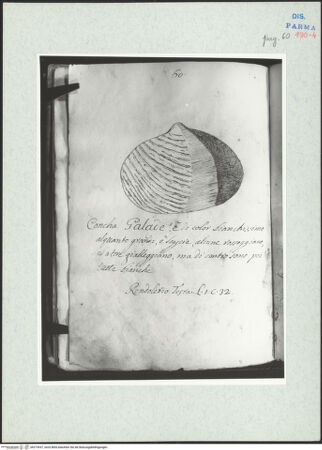 DIS.
PARMA
pag. 60 190-4
60.
Concha Palace. È di color bianchissimo
alquanto grossa, e liscia, alcune rosseggiano,
et altre gialleggiano, ma di dentro sono poi
tutte bianche
Rondoletio Terra. L. 1. C. 32.